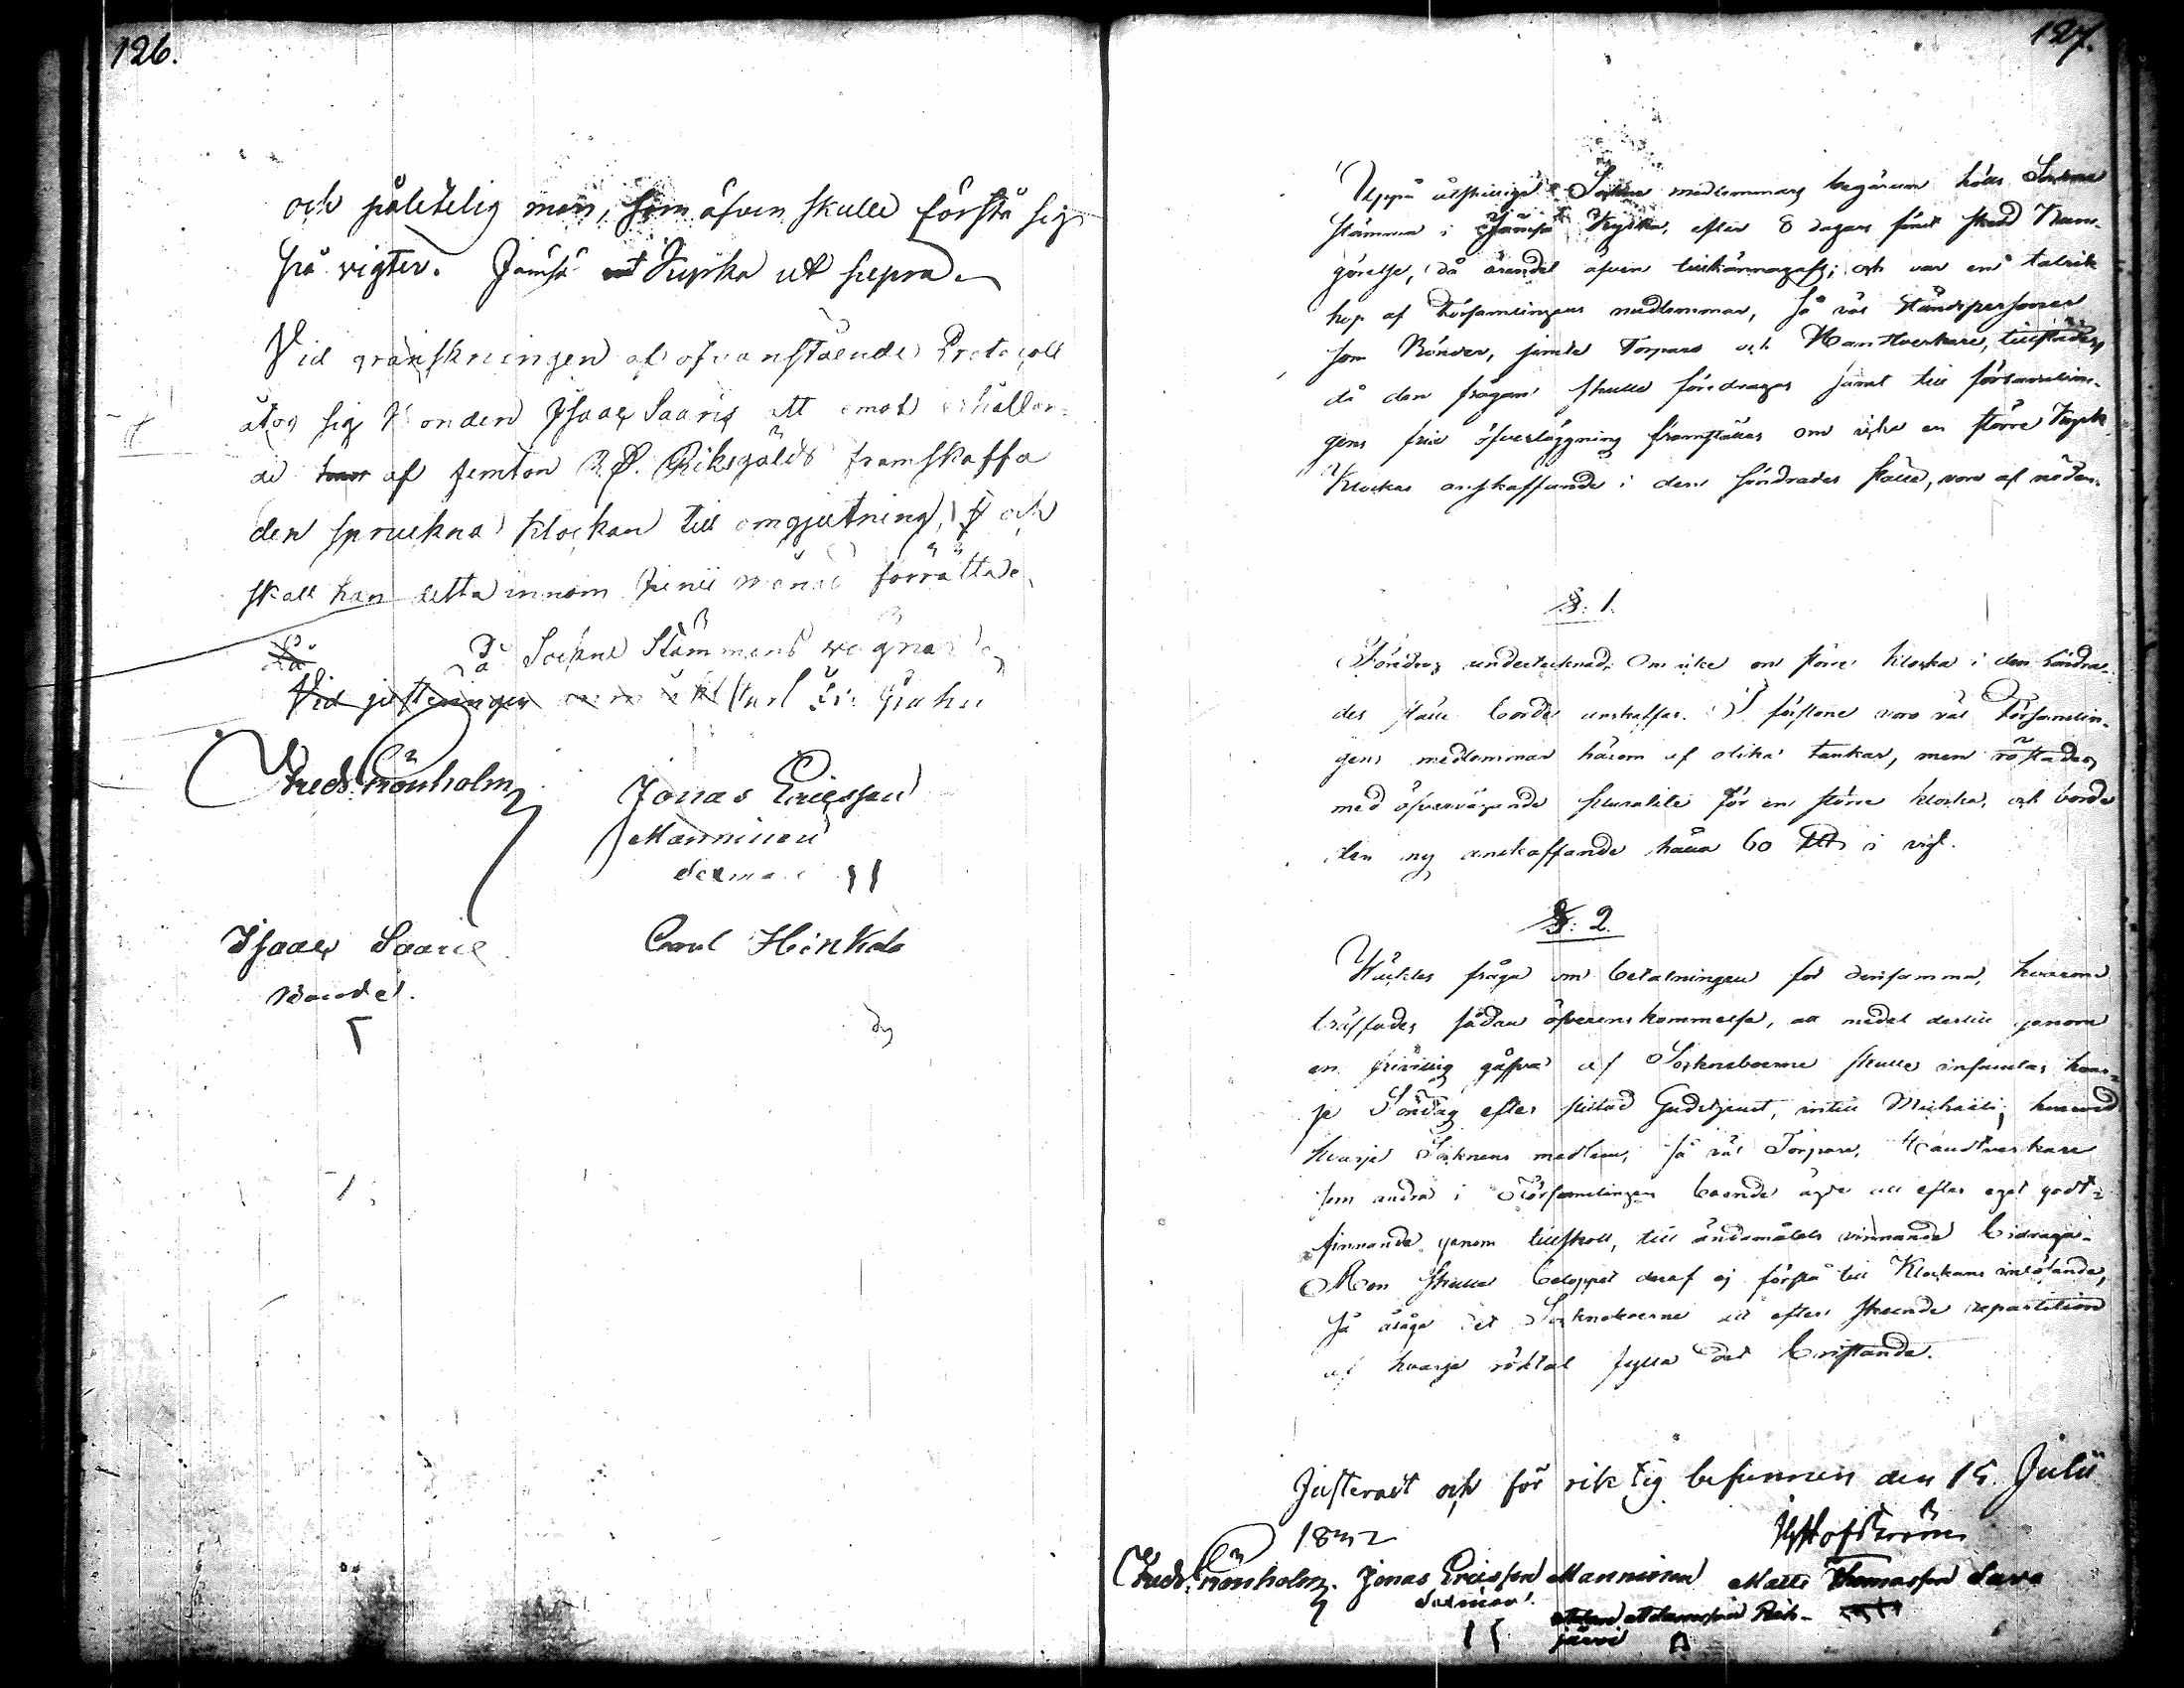 126.
och pålitelig man, som äfven skulle förstå sig
på vigter. Jämsä Kyrka ut supra.
Vid granskningen af ofvanstående Protocoll
åtog sig Bonden Isaac Saaris att emot erhållan-
de af femton R.D. Riksgälds framskaffa
den spruckna klockan till omgjutning, och
skall han detta innom Junii månad förrätta.
På Sockne Stämmans wägnar
Vid justeringen Carl Er: Grahn
Fredr. Grönholm
Jonas Ericsson
Manninen
Sexman
Isaac Saaris
Bonde.
Carl Heinkola
127.
Uppå åtskillige Sockne medlemmars begäran hölls Sockne
stämma i Jämsä Kyrka, efter 8 dagars förut skedd Kun-
görelse, då ärendet äfven tillkännagafs; och var en talrik
hop af Församlingens medlemmar, så väl Ståndspersoner
som Bönder, jämte Torpare och Handtverkare, tillstädes,
då den frågan skulle föredragas samt till församlin-
gens fria öfverläggning framställas om icke en större Kyrk
Klockas anskaffande i den söndrades ställe, vore af nöden.
§: 1.
Föredrog undertecknad, Om icke en större klocka i den söndra-
des ställe borde anskaffas. I förstone voro väl Församlin-
gens medlemmar härom af olika tankar, men röstades
med öfvervägande pluralité för en större klocka, och borde
den ny anskaffande hålla 60 i vigt.
§: 2.
Väcktes fråga om betalningen för densamma, hvarom
träffades sådan öfverenskommelse, att medel dertill genom
en frivillig gåfva af Sockneboerne skulle insamlas hvar-
je Söndag efter slutad Gudstjenst, intill Michaeli; hvarvid
hvarje Socknens medlem, så väl Torpare, Handtverkare
som andra i Församlingen boende ägde att efter eget godt-
finnande genom tillskott, till ändamålets vinnande bidraga.
Men skulle beloppet deraf ej förslå till Klockans inlösande,
så ålåge det Socknoboerne att efter skeende repartition
af hvarje röktal fylla det bristande.
Justerat och för riktig befunnen den 15. Julii
1832
Hofström
Fredr. Grönholm. Jonas Ericsson Manninen Matts Thomasson Sava
Sexman.
järvi